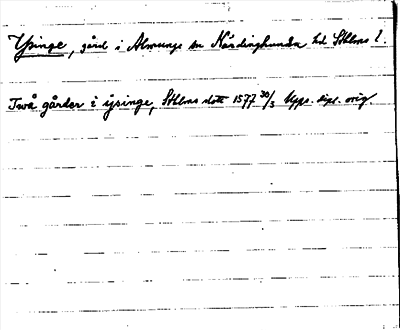 Ysinge, gård i Almunge sn Närdinghundra hd Sthlms l.
Två gårder i ysinge, Sthlms slott 1577 30/3 Upps. dipl. orig